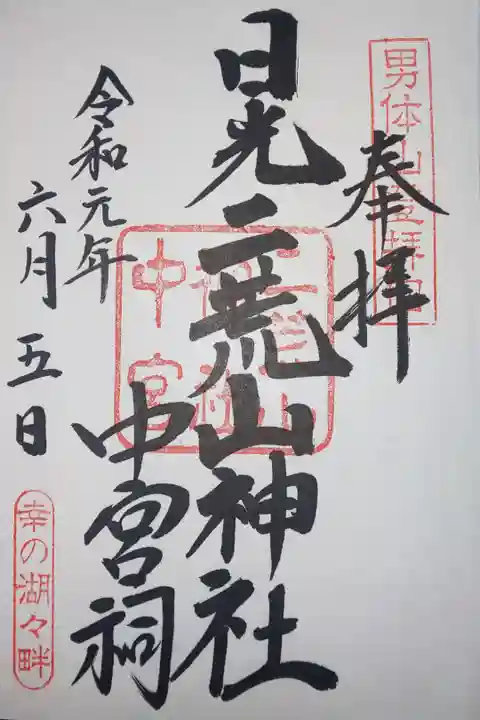 奉拝
男体山登拝門
日光二荒山神社
中宮祠
二荒山
神社
中宮
令和元年
六月
五日
幸の湖々畔